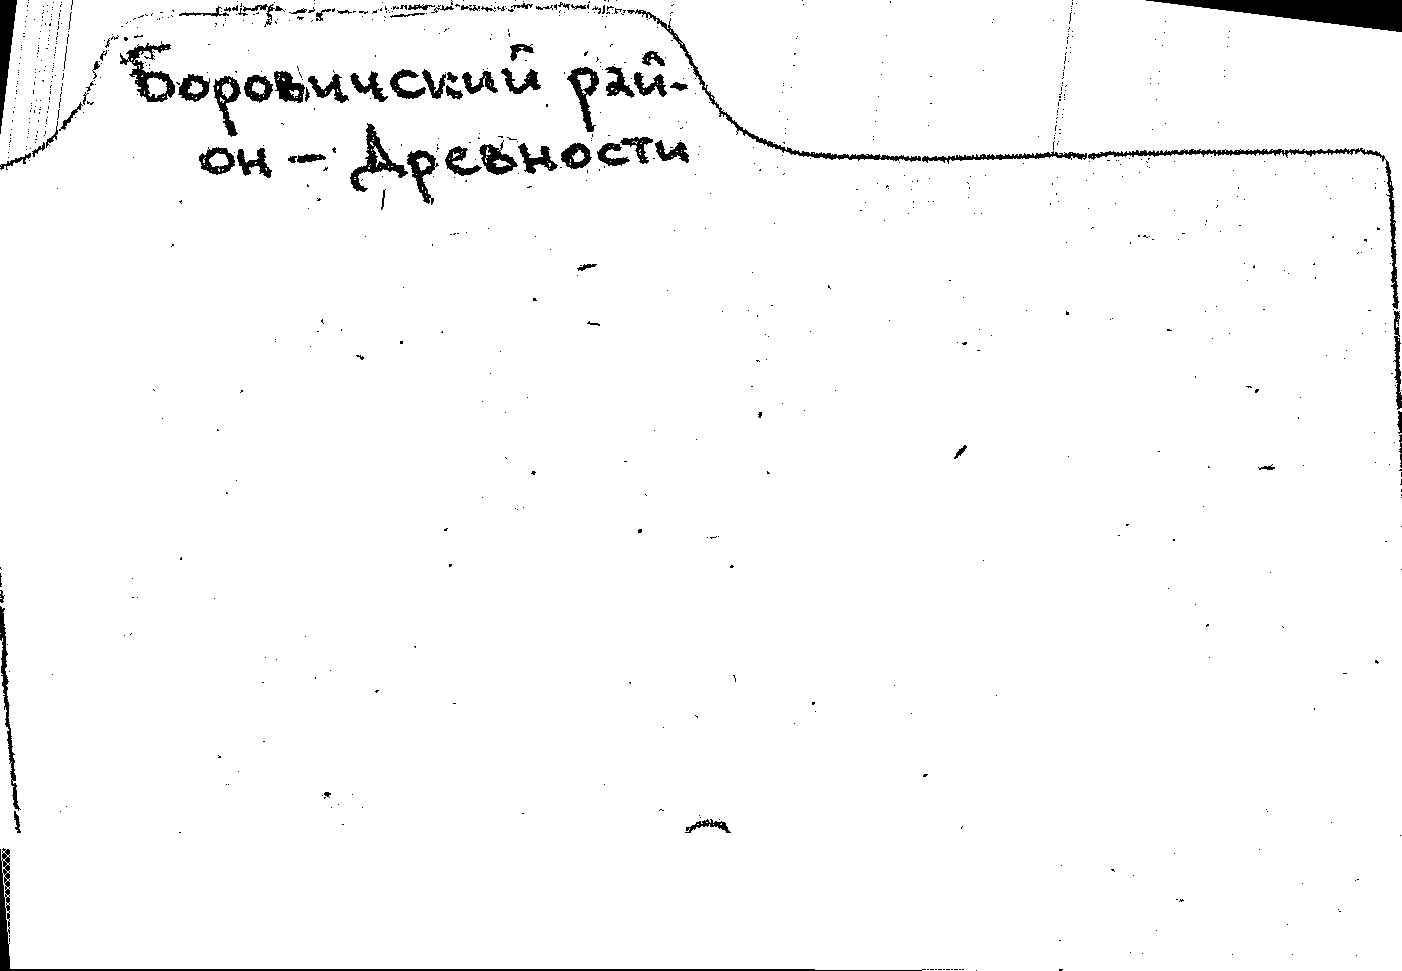 Боровичский рай-
он – Древности